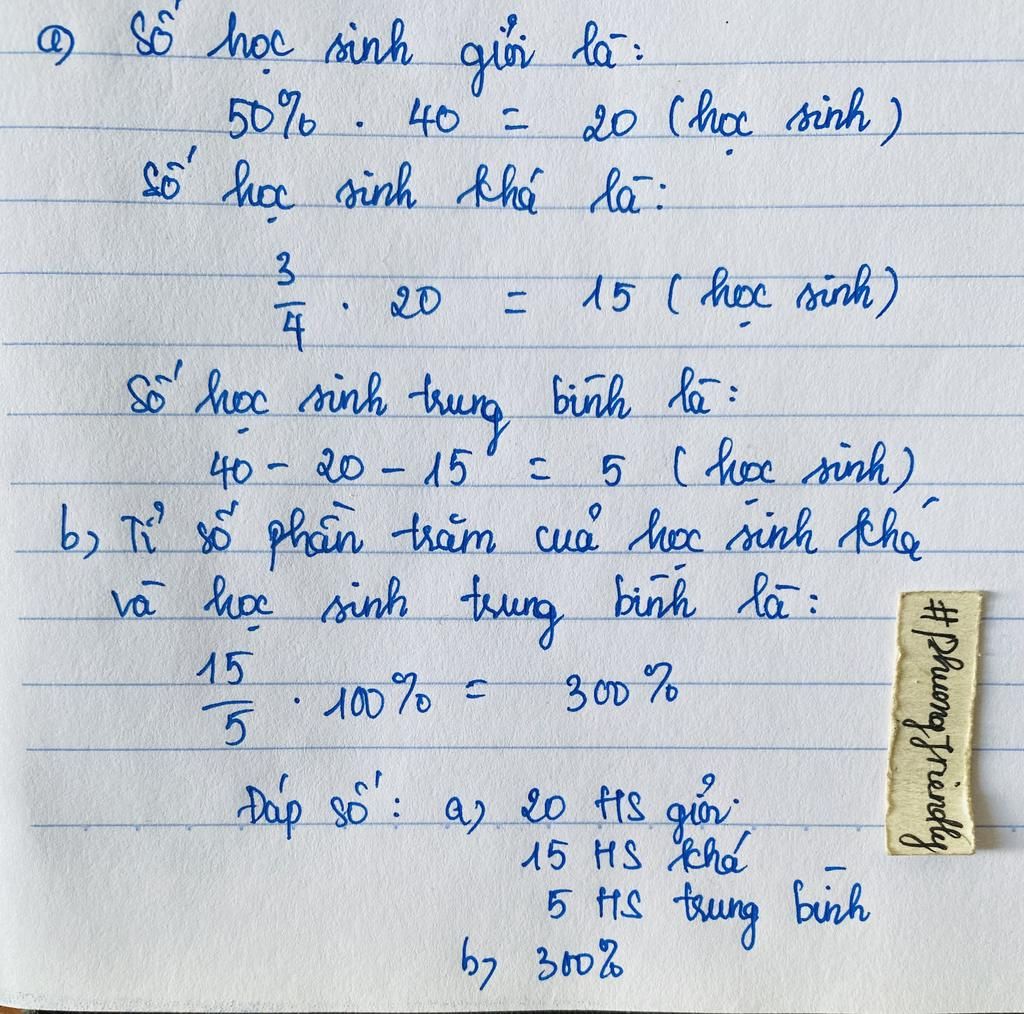 a) Số học sinh giỏi là:
50% . 40 = 20 (học sinh)
Số học sinh khá là:
3/4 . 20 = 15 (học sinh)
Số học sinh trung bình là:
40 - 20 - 15 = 5 (học sinh)
b) Tỉ số phần trăm của học sinh khá
và học sinh trung bình là:
15/5 . 100% = 300%
Đáp số: a) 20 HS giỏi
15 HS khá
5 HS trung bình
b) 300%
#phuongfriendly